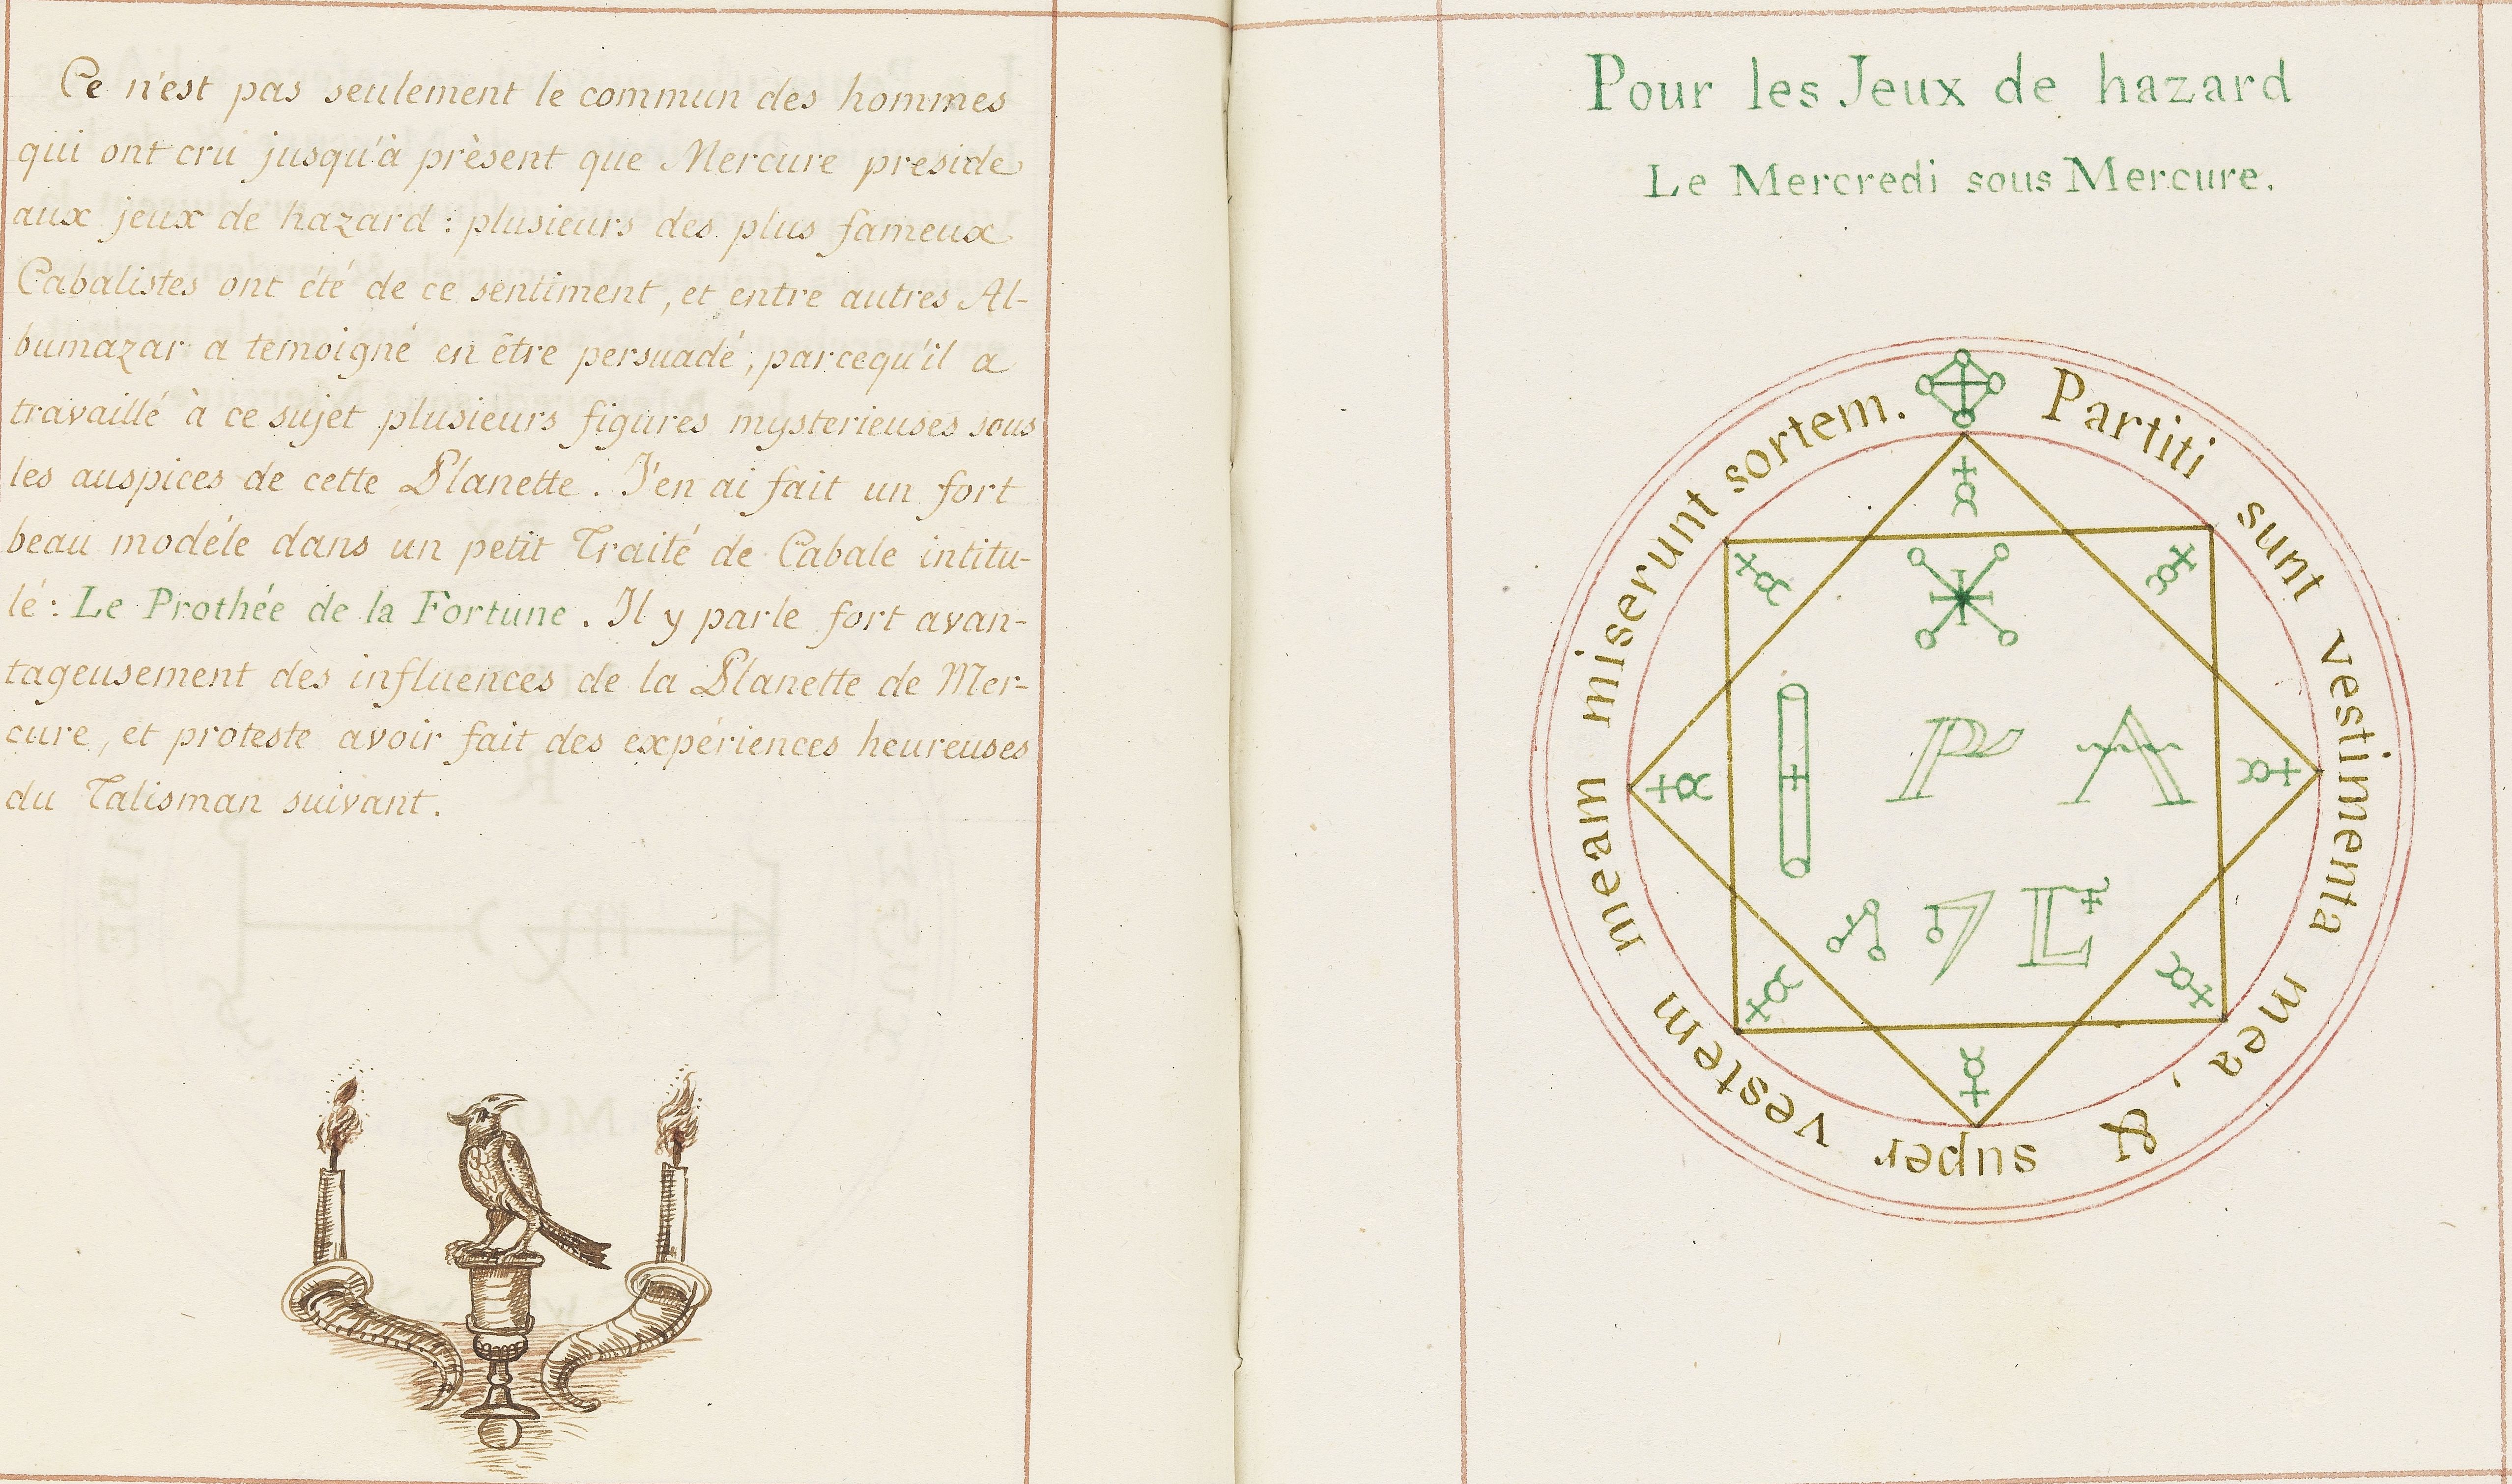 Ce n'est pas seulement le commun des hommes
qui ont cru jusqu'à présent que Mercure preside
aux jeux de hazard : plusieurs des plus fameux
Cabalistes ont été de ce sentiment, et entre autres Al-
bumazar a temoigné en être persuadé, parcequ'il a
travaillé à ce sujet plusieurs figures mysterieuses sous
les auspices de cette Planette. J'en ai fait un fort
beau modéle dans un petit Traité de Cabale intitu-
lé : Le Prothée de la Fortune. Il y parle fort avan-
tageusement des influences de la Planette de Mer-
cure, et proteste avoir fait des expériences heureuses
du Talisman suivant.
Pour les Jeux de hazard
Le Mercredi sous Mercure.
Partiti sunt vestimenta mea, & super vestem meam miserunt sortem.
P A
L